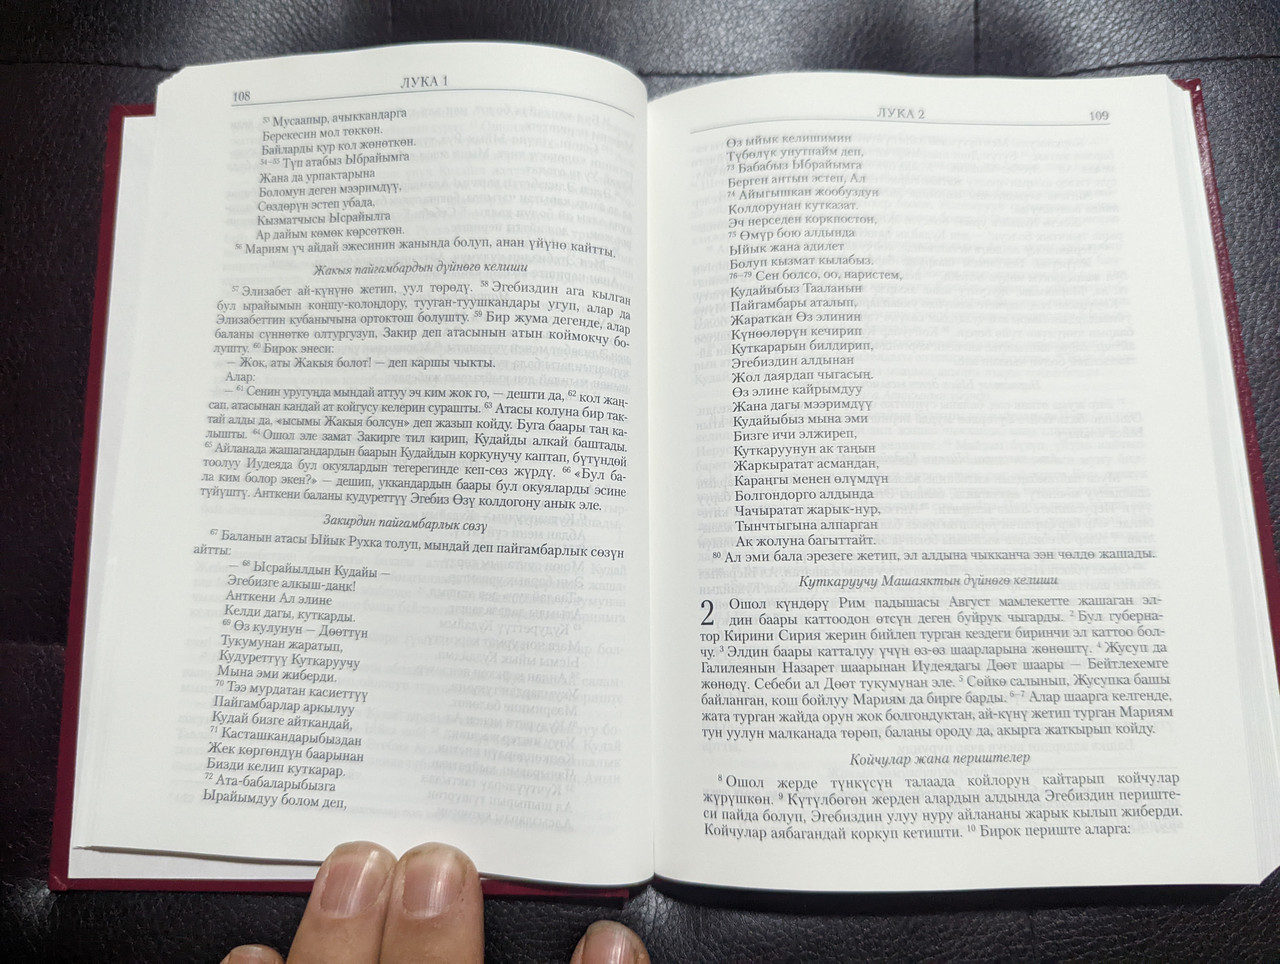 108
ЛУКА 1
53 Мусаапыр, ачыккандарга
Берекесин мол төккөн.
Байларды кур кол жөнөткөн.
54–55 Түп атабыз Ыбрайымга
Жана да урпактарына
Боломун деген мээримдүү,
Сөздөрүн эстеп убада,
Кызматчысы Ысрайылга
Ар дайым көмөк көрсөткөн.
56 Мариям үч айдай эжесинин жанында болуп, анан үйүнө кайтты.
Жакыя пайгамбардын дүйнөгө келиши
57 Элизабет ай-күнүнө жетип, уул төрөдү. 58 Эгебиздин ага кылган
бул ырайымын коңшу-колоңдору, тууган-туушкандары угуп, алар да
Элизабеттин кубанычына ортоктош болушту. 59 Бир жума дегенде, алар
баланы сүннөткө олтургузуп, Закир деп атасынын атын коймокчу бо-
лушту. 60 Бирок энеси:
— Жок, аты Жакыя болот! — деп каршы чыкты.
Алар:
— 61 Сенин уругуңда мындай аттуу эч ким жок го, — дешти да, 62 кол жаң-
сап, атасынан кандай ат койгусу келерин сурашты. 63 Атасы колуна бир так-
тай алды да, «ысымы Жакыя болсун» деп жазып койду. Буга баары таң ка-
лышты. 64 Ошол эле замат Закирге тил кирип, Кудайды алкай баштады.
65 Айланада жашагандардын баарын Кудайдын коркунучу каптап, бүтүндөй
тоолуу Иудеяда бул окуялардын тегерегинде кеп-сөз жүрдү. 66 «Бул ба-
ла ким болор экен?» — дешип, уккандардын баары бул окуяларды эсине
түйүштү. Анткени баланы кудуреттүү Эгебиз Өзү колдогону анык эле.
Закирдин пайгамбарлык сөзү
67 Баланын атасы Ыйык Рухка толуп, мындай деп пайгамбарлык сөзүн
айтты:
— 68 Ысрайылдын Кудайы —
Эгебизге алкыш-даңк!
Анткени Ал элине
Келди дагы, куткарды.
69 Өз кулунун — Дөөттүн
Тукумунан жаратып,
Кудуреттүү Куткаруучу
Мына эми жиберди.
70 Тээ мурдатан касиеттүү
Пайгамбарлар аркылуу
Кудай бизге айткандай,
71 Касташкандарыбыздан
Жек көргөндүн баарынан
Бизди келип куткарар.
72 Ата-бабаларыбызга
Ырайымдуу болом деп,
ЛУКА 2
109
Өз ыйык келишимин
Түбөлүк унутпайм деп,
73 Бабабыз Ыбрайымга
Берген антын эстеп, Ал
74 Айыгышкан жообуздун
Колдорунан кутказат.
Эч нерседен коркпостон,
75 Өмүр бою алдында
Ыйык жана адилет
Болуп кызмат кылабыз.
76–79 Сен болсо, оо, наристем,
Кудайыбыз Тааланын
Пайгамбары аталып,
Жараткан Өз элинин
Күнөөлөрүн кечирип
Куткарарын билдирип,
Эгебиздин алдынан
Жол даярдап чыгасың.
Өз элине кайрымдуу
Жана дагы мээримдүү
Кудайыбыз мына эми
Бизге ичи элжиреп,
Куткаруунун ак таңын
Жаркыратат асмандан,
Караңгы менен өлүмдүн
Болгондорго алдында
Чачыратат жарык-нур,
Тынчтыгына алпарган
Ак жолуна багыттайт.
80 Ал эми бала эрезеге жетип, эл алдына чыкканча ээн чөлдө жашады.
Куткаруучу Машаяктын дүйнөгө келиши
2 Ошол күндөрү Рим падышасы Август мамлекетте жашаган эл-
дин баары каттоодон өтсүн деген буйрук чыгарды. 2 Бул губерна-
тор Кирини Сирия жерин бийлеп турган кездеги биринчи эл каттоо бол-
чу. 3 Элдин баары катталуу үчүн өз-өз шаарларына жөнөштү. 4 Жусуп да
Галилеянын Назарет шаарынан Иудеядагы Дөөт шаары — Бейтлехемге
жөнөдү. Себеби ал Дөөт тукумунан эле. 5 Сөйкө салынып, Жусупка башы
байланган, кош бойлуу Мариям да бирге барды. 6–7 Алар шаарга келгенде,
жата турган жайда орун жок болгондуктан, ай-күнү жетип турган Мариям
тун уулун малканада төрөп, баланы ороду да, акырга жаткырып койду.
Койчулар жана периштелер
8 Ошол жерде түнкүсүн талаада койлорун кайтарып койчулар
жүрүшкөн. 9 Күтүлбөгөн жерден алардын алдында Эгебиздин периште-
си пайда болуп, Эгебиздин улуу нуру айлананы жарык кылып жиберди.
Койчулар аябагандай коркуп кетишти. 10 Бирок периште аларга: